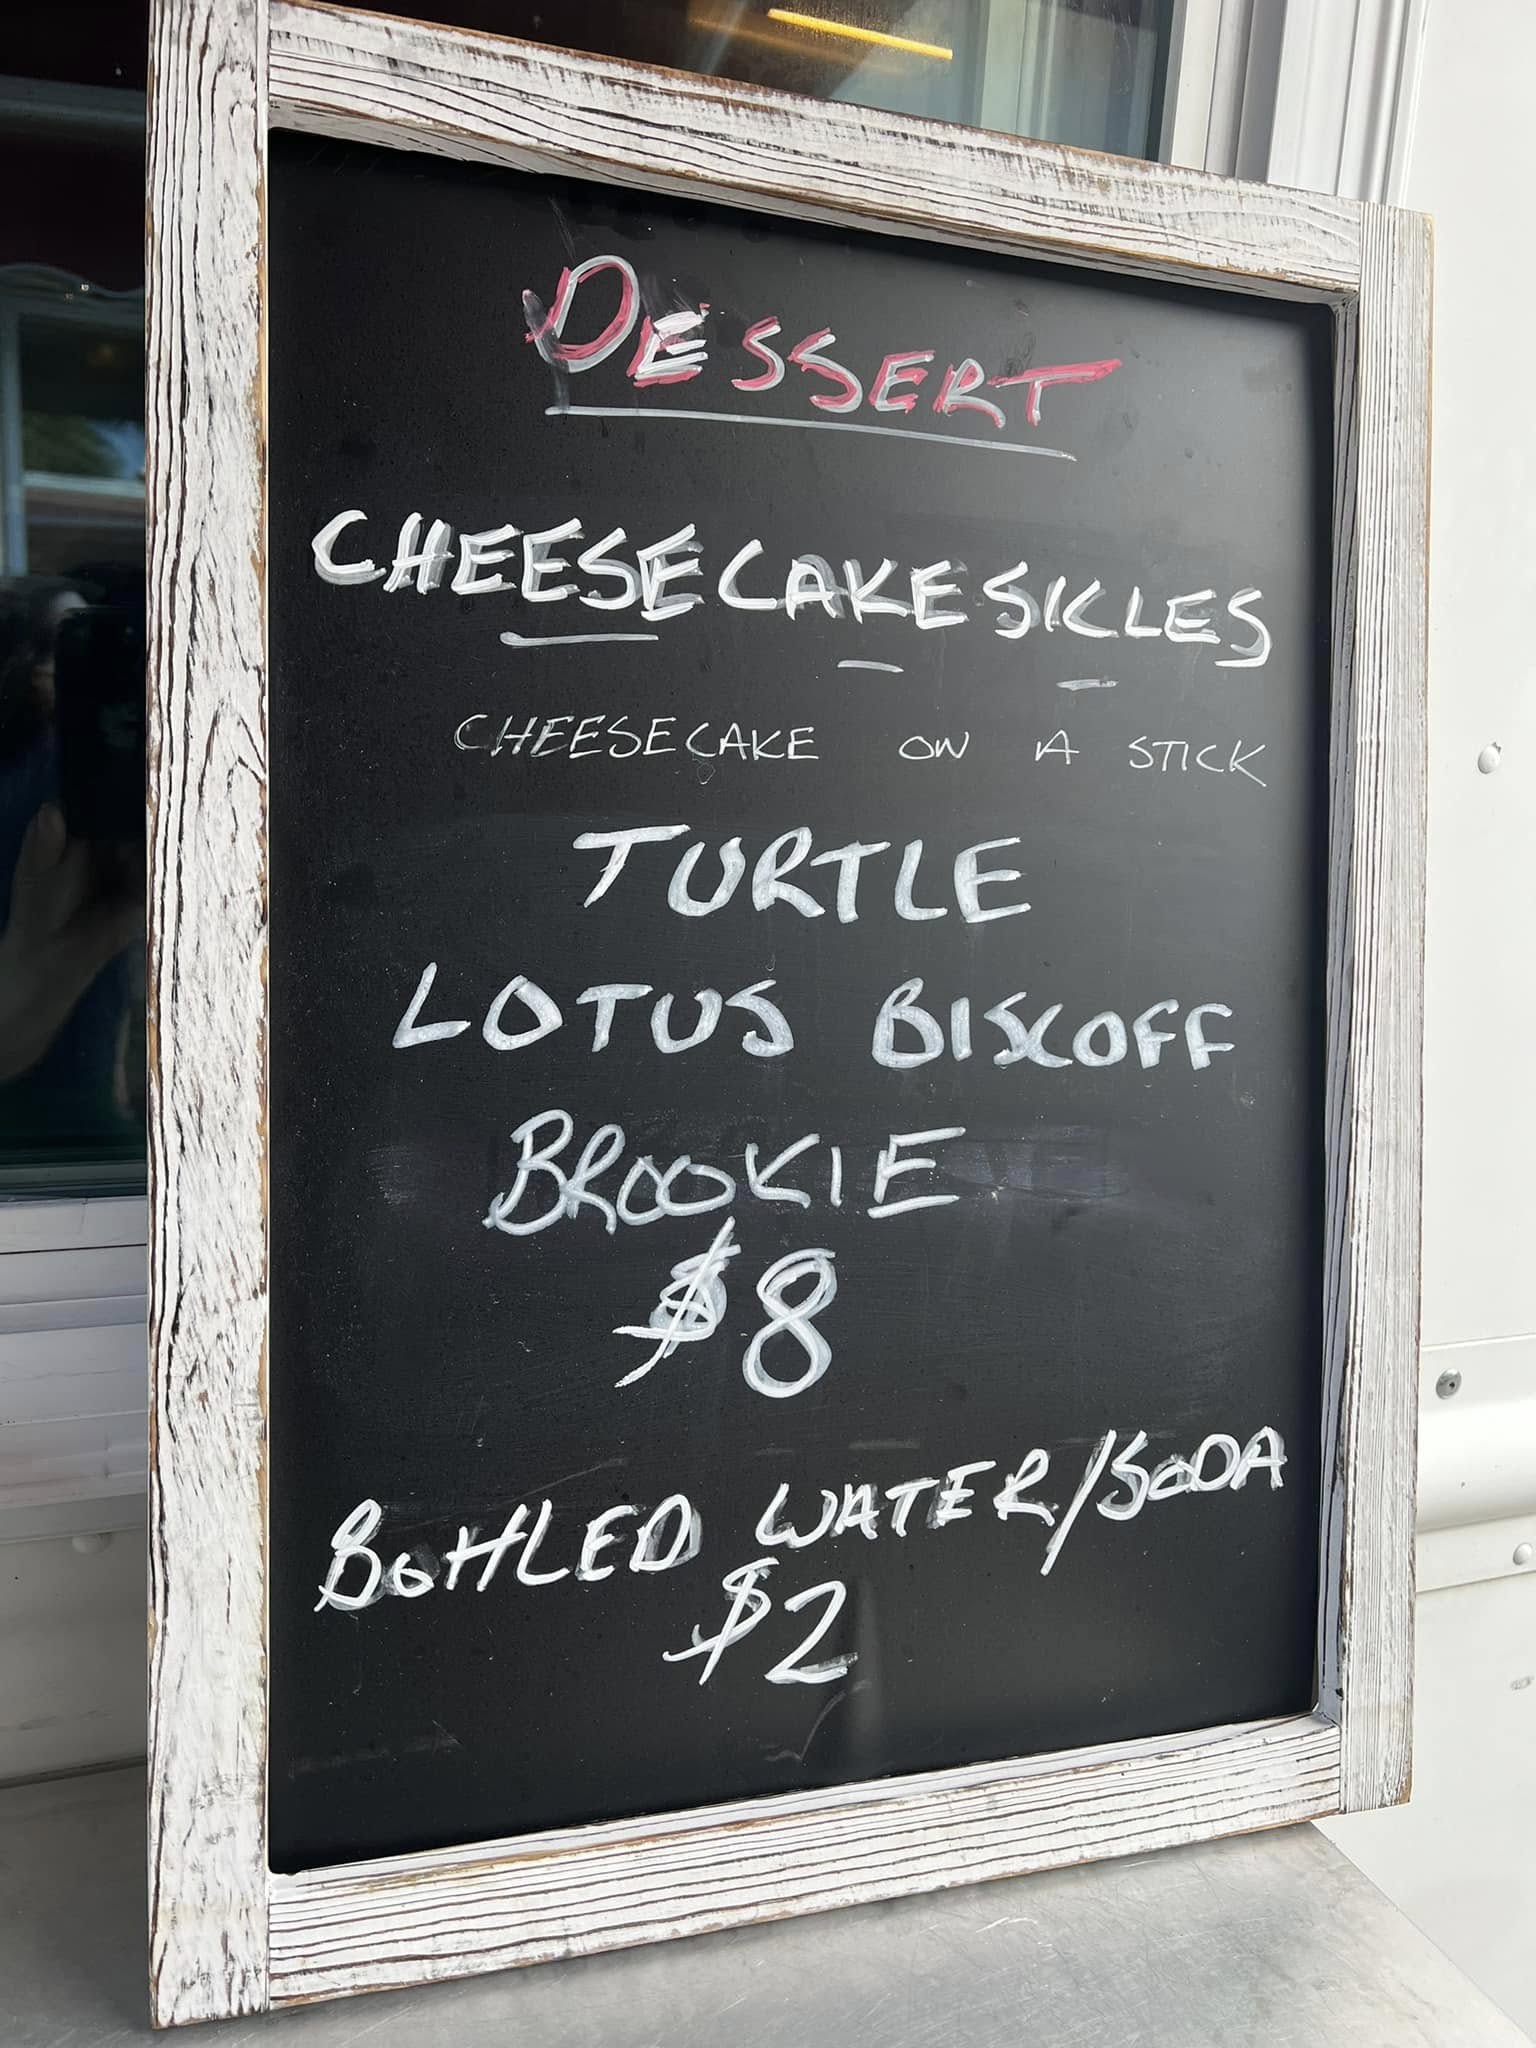 DESSERT
CHEESECAKESICLES
CHEESECAKE ON A STICK
TURTLE
LOTUS BISCOFF
BROOKIE
$8
BOTTLED WATER/SODA
$2